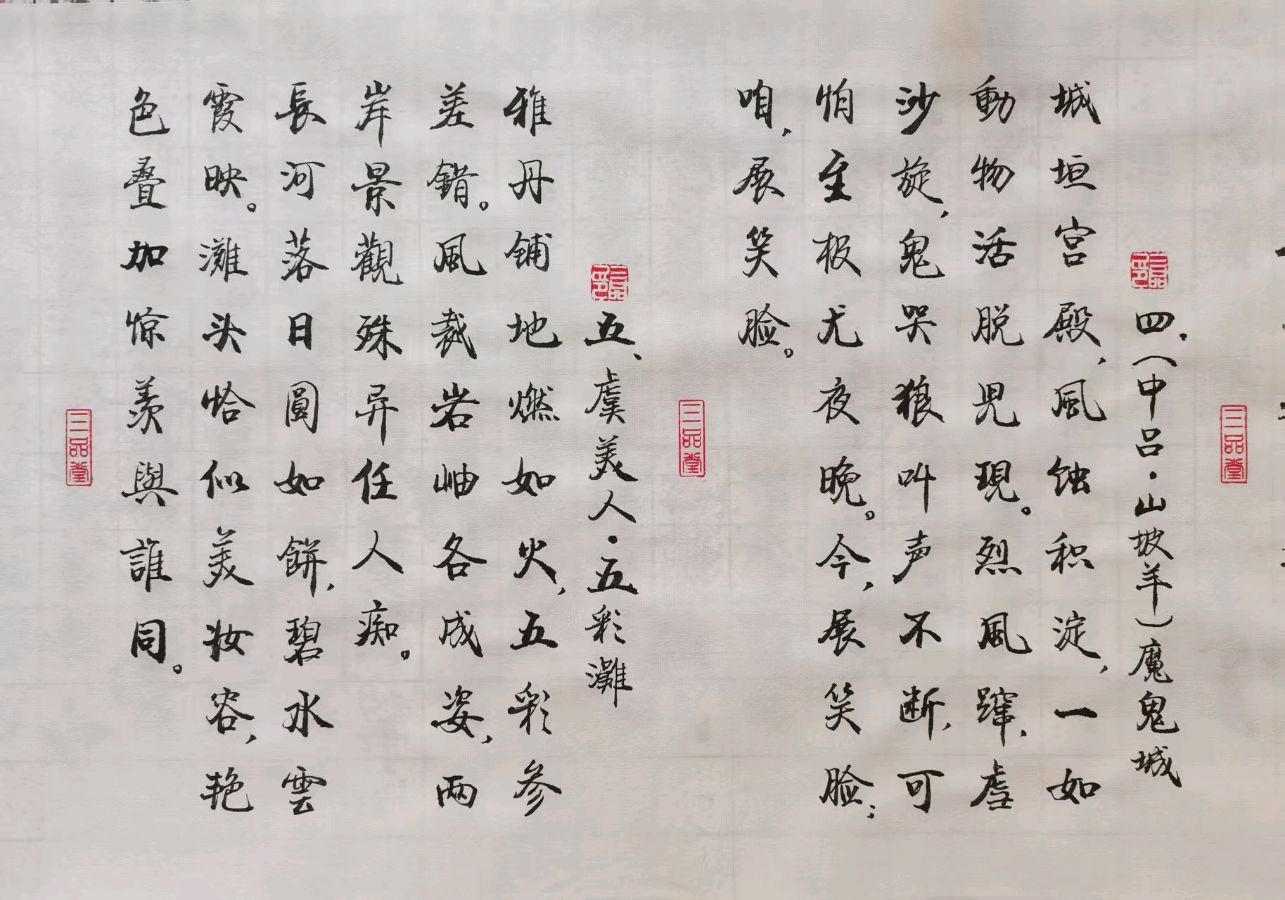 三品堂
四、(中吕·山坡羊)魔鬼城
城垣宫殿,風蚀积淀,一如
動物活脱児現。烈風蹿,虐
沙旋,鬼哭狼叫声不断,可
怕至极尤夜晚。今,展笑脸;
咱,展笑脸。
三品堂
五、虞美人·五彩灘
雅丹铺地燃如火,五彩参
差错。風裁岩岫各成姿,两
岸景觀殊异任人痴。
長河落日圓如餅,碧水雲
霞映。灘头恰似美妆容,艳
色叠加惊羨與誰同。
三品堂